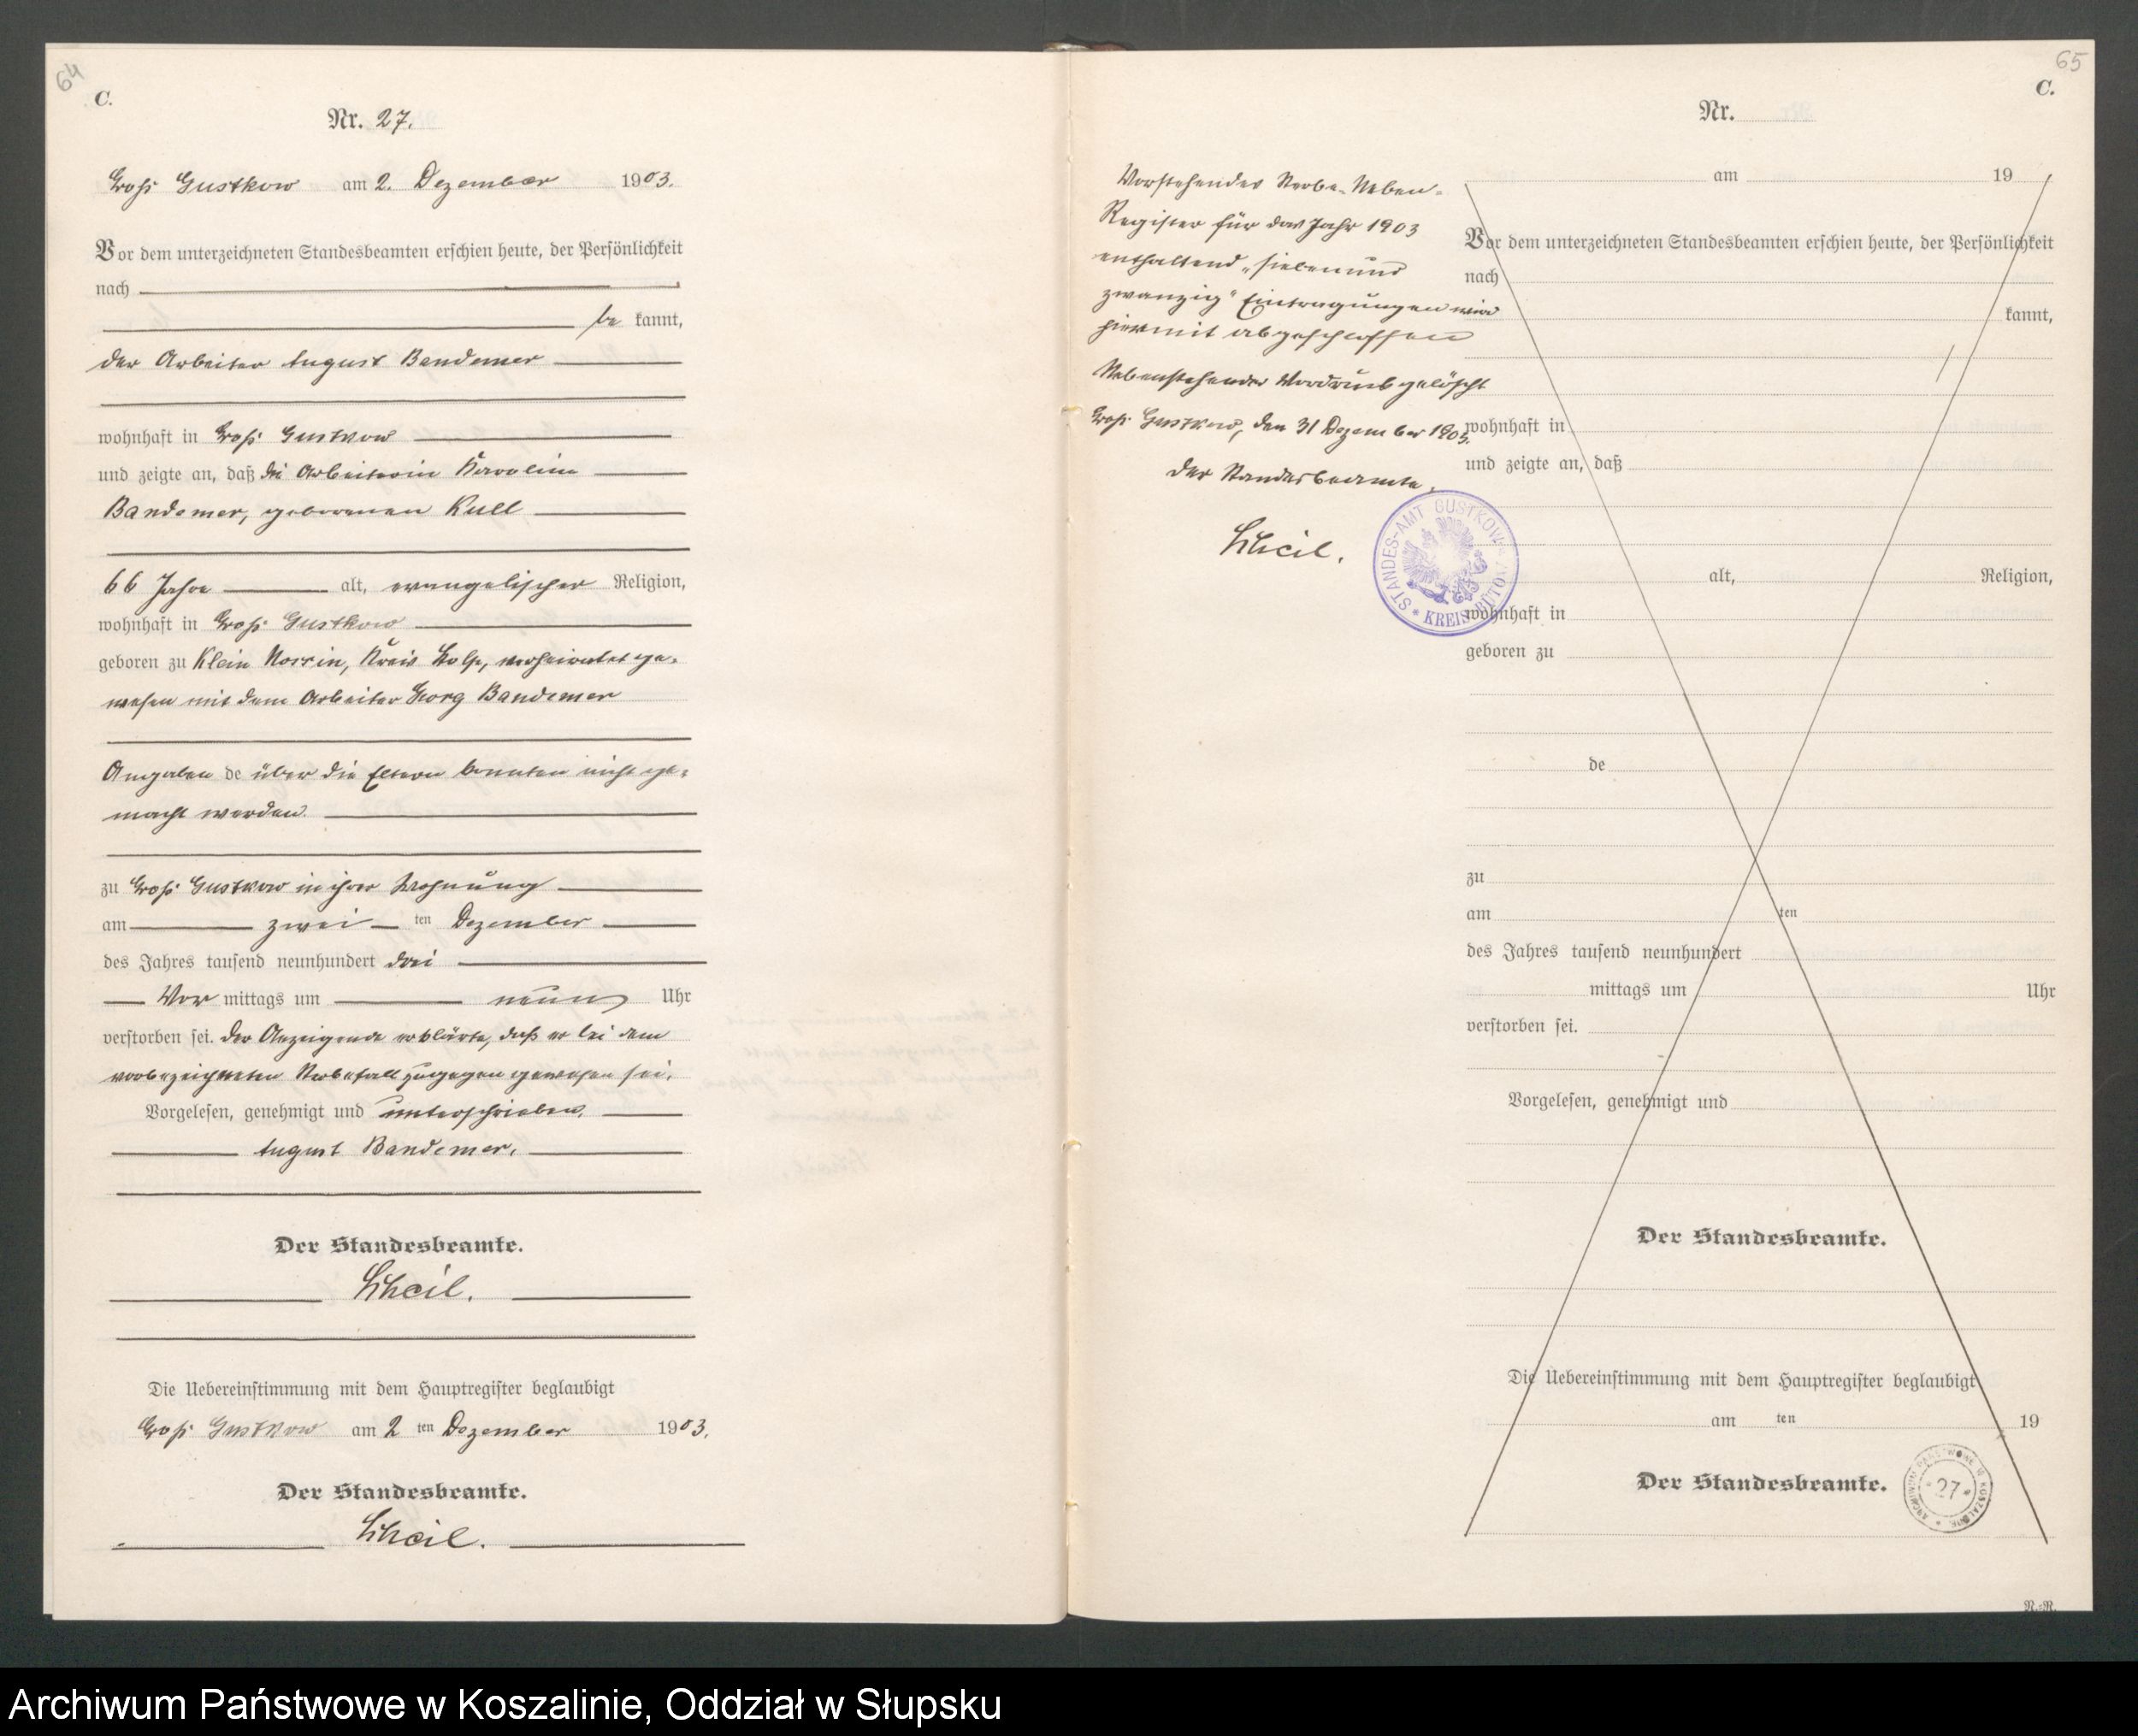 64
C.
Nr. 27.
Groß Gustkow am 2. Dezember 1903.
Vor dem unterzeichneten Standesbeamten erschien heute, der Persönlichkeit
nach
be kannt,
der Arbeiter August Bandemer
wohnhaft in Groß Gustkow
und zeigte an, daß die Arbeiterin Karoline
Bandemer, geborenen Kull
66 Jahre alt, evangelischer Religion,
wohnhaft in Groß Gustkow
geboren zu Klein Nossin, Kreis Stolp, verheiratet ge-
wesen mit dem Arbeiter Georg Bandemer
Angaben de über die Eltern konnten nicht ge-
macht werden.
zu Groß Gustkow in ihrer Wohnung
am zwei ten Dezember
des Jahres tausend neunhundert drei
Vor mittags um neun Uhr
verstorben sei. Der Anzeigende erklärte, daß er bei dem
vorbezeichneten Sterbefall zugegen gewesen sei.
Vorgelesen, genehmigt und unterschrieben.
August Bandemer.
Der Standesbeamte.
Die Uebereinstimmung mit dem Hauptregister beglaubigt
Groß Gustkow am 2 ten Dezember 1903.
Der Standesbeamte.
65
C.
Nr.
am 19
Vorstehendes Sterbe-Neben-
Register für das Jahr 1903
enthaltend „siebenund
zwanzig" Eintragungen wird
hiermit abgeschlossen
Nebenstehender Vordruck gelöscht
Groß Gustkow, den 31 Dezember 1903.
Der Standesbeamte.
STANDES-AMT GUSTKOW * KREIS BÜTOW *
Vor dem unterzeichneten Standesbeamten erschien heute, der Persönlichkeit
nach
kannt,
wohnhaft in
und zeigte an, daß
alt, Religion,
wohnhaft in
geboren zu
de
zu
am ten
des Jahres tausend neunhundert
mittags um Uhr
verstorben sei.
Vorgelesen, genehmigt und
Der Standesbeamte.
Die Uebereinstimmung mit dem Hauptregister beglaubigt
am ten 19
Der Standesbeamte.
ARCHIWUM PAŃSTWOWE W KOSZALINIE * 27 *
N.=R.
Archiwum Państwowe w Koszalinie, Oddział w Słupsku